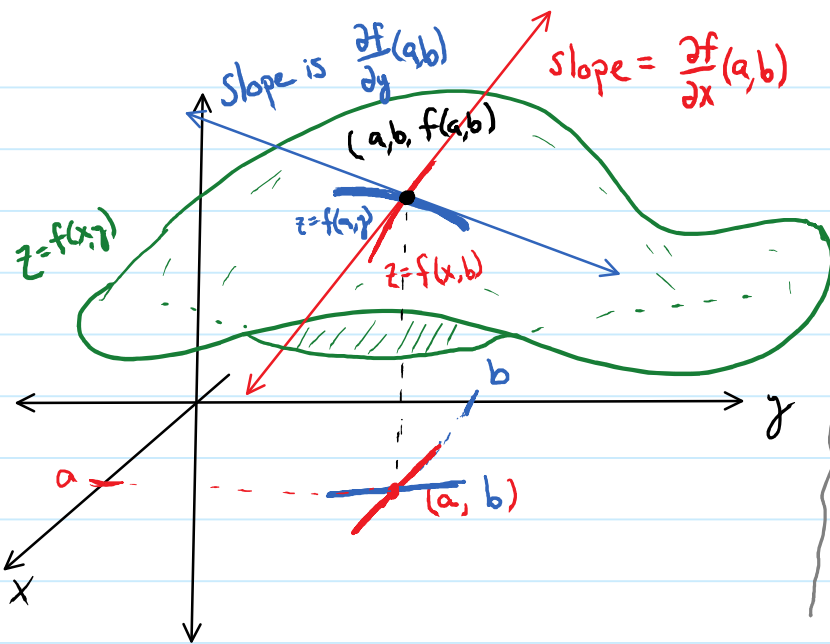 slope is ∂f/∂y (a,b)
slope = ∂f/∂x (a,b)
(a,b, f(a,b))
z=f(x,y)
z=f(a,y)
z=f(x,b)
b
y
a
(a, b)
x